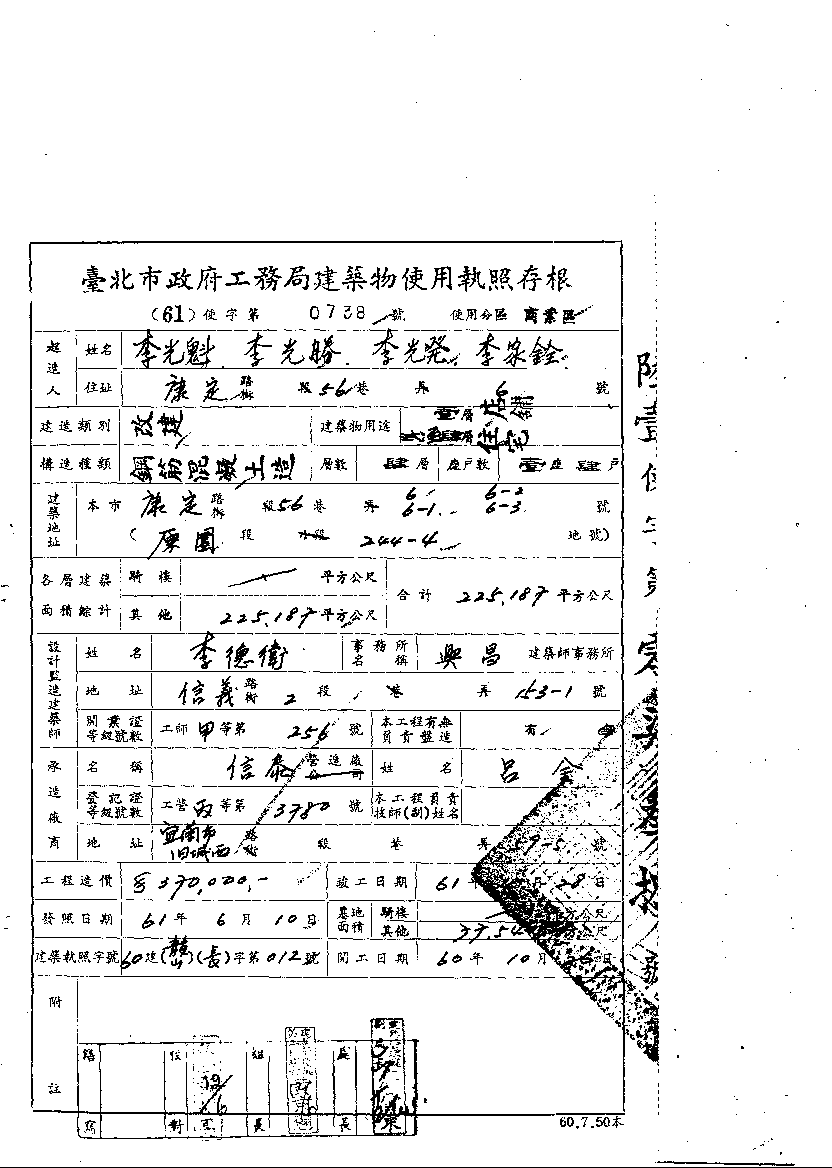 臺北市政府工務局建築物使用執照存根
(61)使字第 0738 號 使用分區 商業區
起造人 姓名 李光魁、李光勝、李光發、李家銓
住址 康定路街 段 56巷 弄 號
建造類別 改建 建築物用途 壹層店鋪 貳至肆層住宅
構造種類 鋼筋混凝土造 層數 肆層 座戶數 壹座肆戶
建築地址 本市 康定路街 段 56巷 弄 6、6-1、6-2、6-3 號
( 段 小段 244-4 地號)
各層建築面積綜計 騎樓 平方公尺 合計 225.187 平方公尺
其他 225.187 平方公尺
設計監造建築師 姓名 李德衛 事務所名稱 興昌 建築師事務所
地址 信義路街 2段 巷 弄 153-1 號
開業證等級號數 工師甲等第 256 號 本工程有無負責監造 有
承造廠商 名稱 信泰營造廠公司 姓名 呂
登記證等級號數 工營丙等第 3780 號 本工程負責技師(副)姓名
地址 宜蘭市旧城西路街 段 巷 弄 號
工程造價 $370,000.- 竣工日期 61年 28日
發照日期 61年6月10日 基地面積 騎樓 平方公尺
其他 公尺
建築執照字號 60建( )(長)字第012號 開工日期 60年10月 日
附註
繕寫 校對 組長 長
60.7.50本
陸壹使字第零